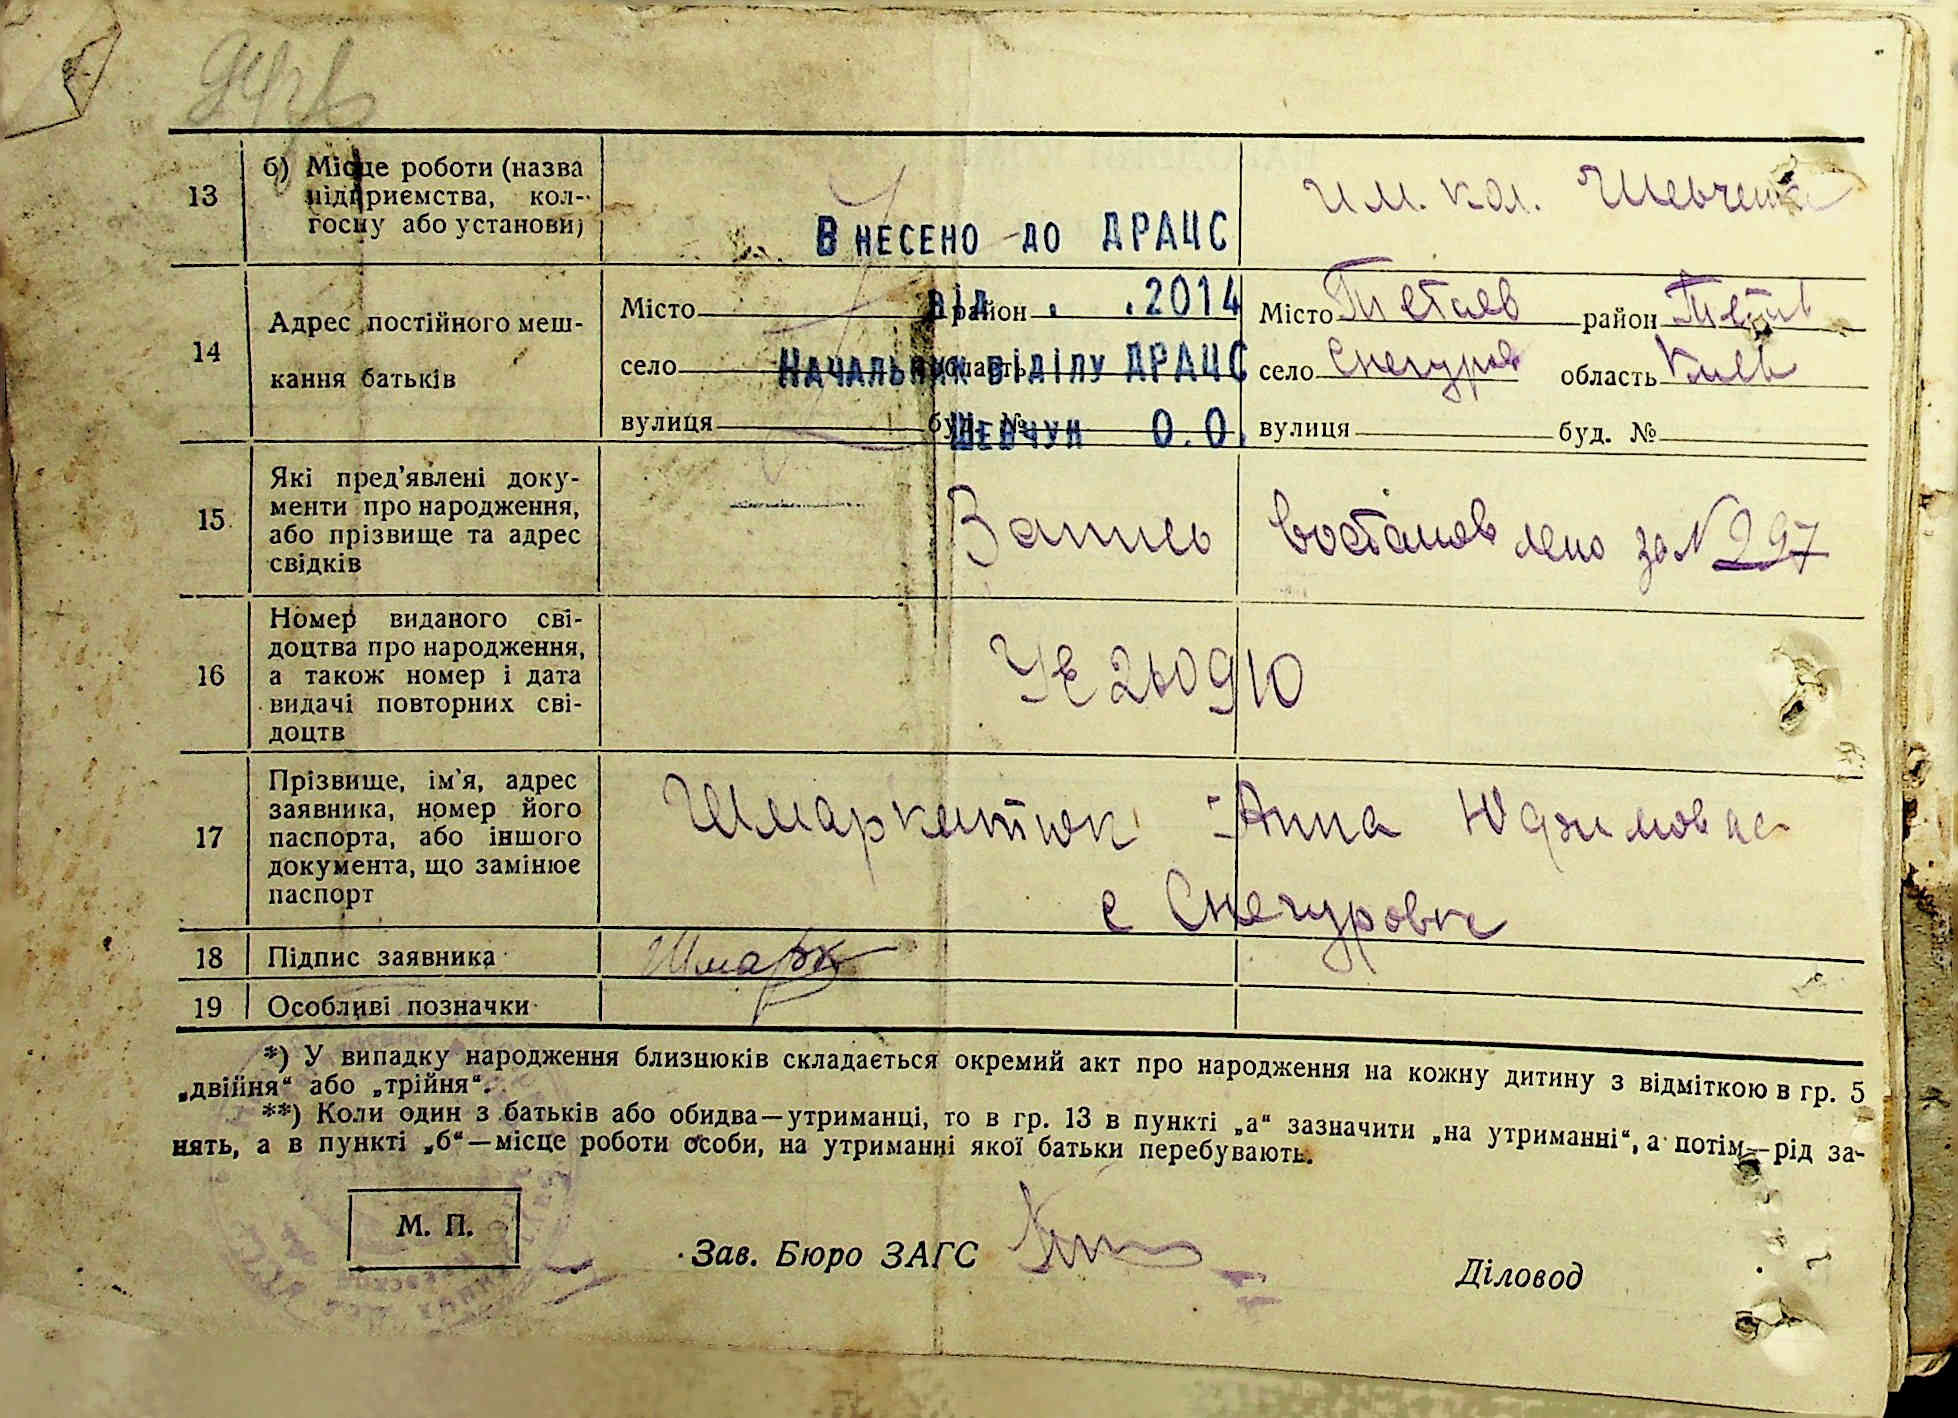 13
б) Місце роботи (назва
підприємства, кол-
госпу або установи)
им. кол. Шевченка
Внесено до ДРАЦС
від . .2014
Начальник відділу ДРАЦС
Шевчук О.О.
14
Адрес постійного меш-
кання батьків
Місто район
село область
вулиця буд. №
Місто Тетиев район
село Снегуров область Киев
вулиця буд. №
15
Які пред'явлені доку-
менти про народження,
або прізвище та адрес
свідків
Запись востановлено за № 297
16
Номер виданого сві-
доцтва про народження,
а також номер і дата
видачі повторних сві-
доцтв
УЕ 260910
17
Прізвище, ім'я, адрес
заявника, номер його
паспорта, або іншого
документа, що замінює
паспорт
Анна Юфимовна
с Снегуровка
18 Підпис заявника
Шмарк
19 Особливі позначки
*) У випадку народження близнюків складається окремий акт про народження на кожну дитину з відміткою в гр. 5
„двійня“ або „трійня“.
**) Коли один з батьків або обидва—утриманці, то в гр. 13 в пункті „а“ зазначити „на утриманні“, а потім—рід за-
нять, а в пункті „б“—місце роботи особи, на утриманні якої батьки перебувають.
М. П.
Зав. Бюро ЗАГС
Діловод